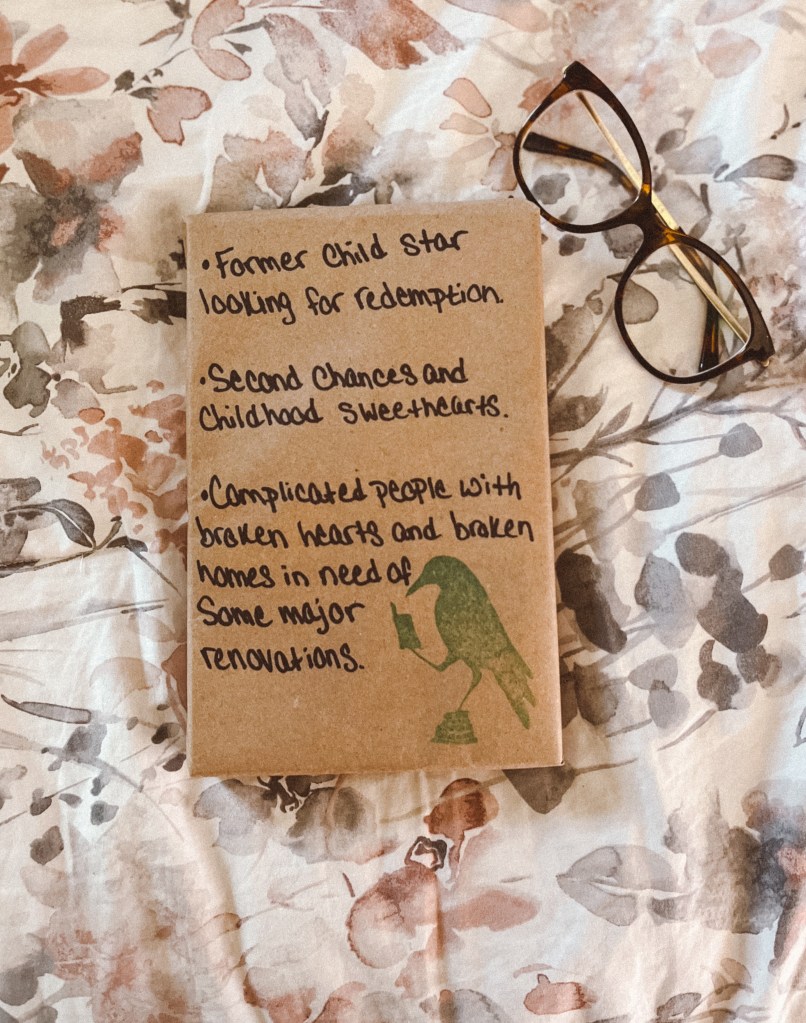 • Former Child Star
looking for redemption.
• Second Chances and
Childhood Sweethearts.
• Complicated people with
broken hearts and broken
homes in need of
Some major
renovations.